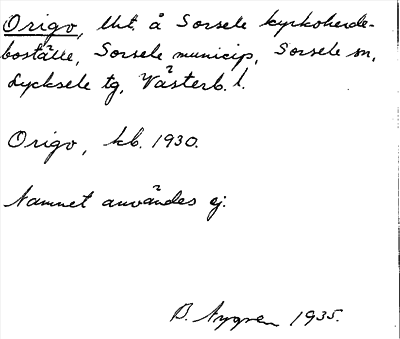 Origo, lht. å Sorsele kyrkoherde-
boställe, Sorsele municip, Sorsele sn,
Lycksele tg, Västerb. l.
Origo, kb. 1930.
Namnet användes ej.
B. Nygren 1935.